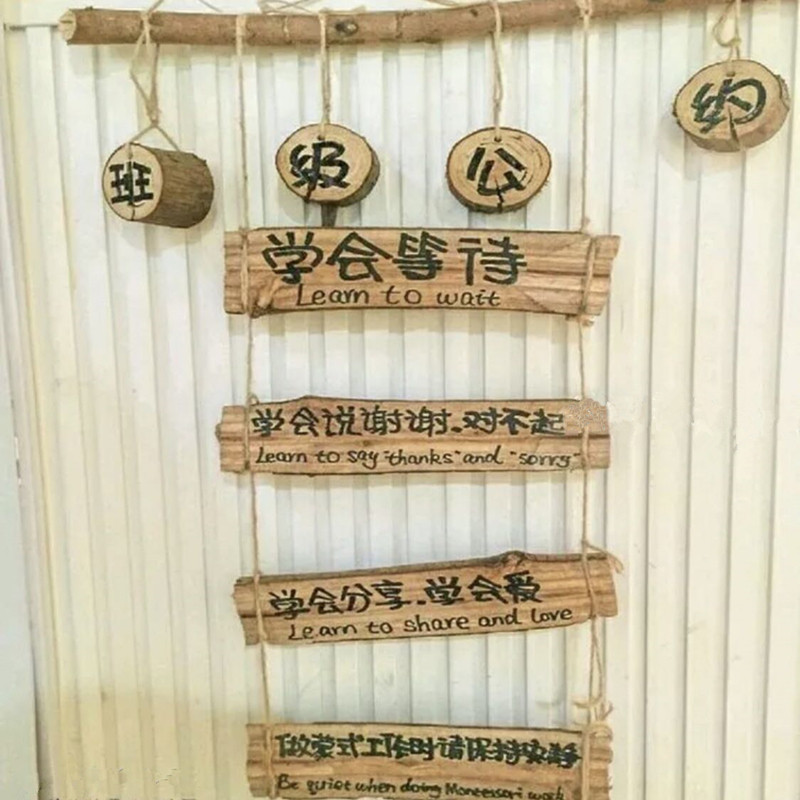 班级公约
学会等待
Learn to wait
学会说谢谢.对不起
Learn to say "thanks" and "sorry"
学会分享.学会爱
Learn to share and love
做蒙式工作时请保持安静
Be quiet when doing Montessori work